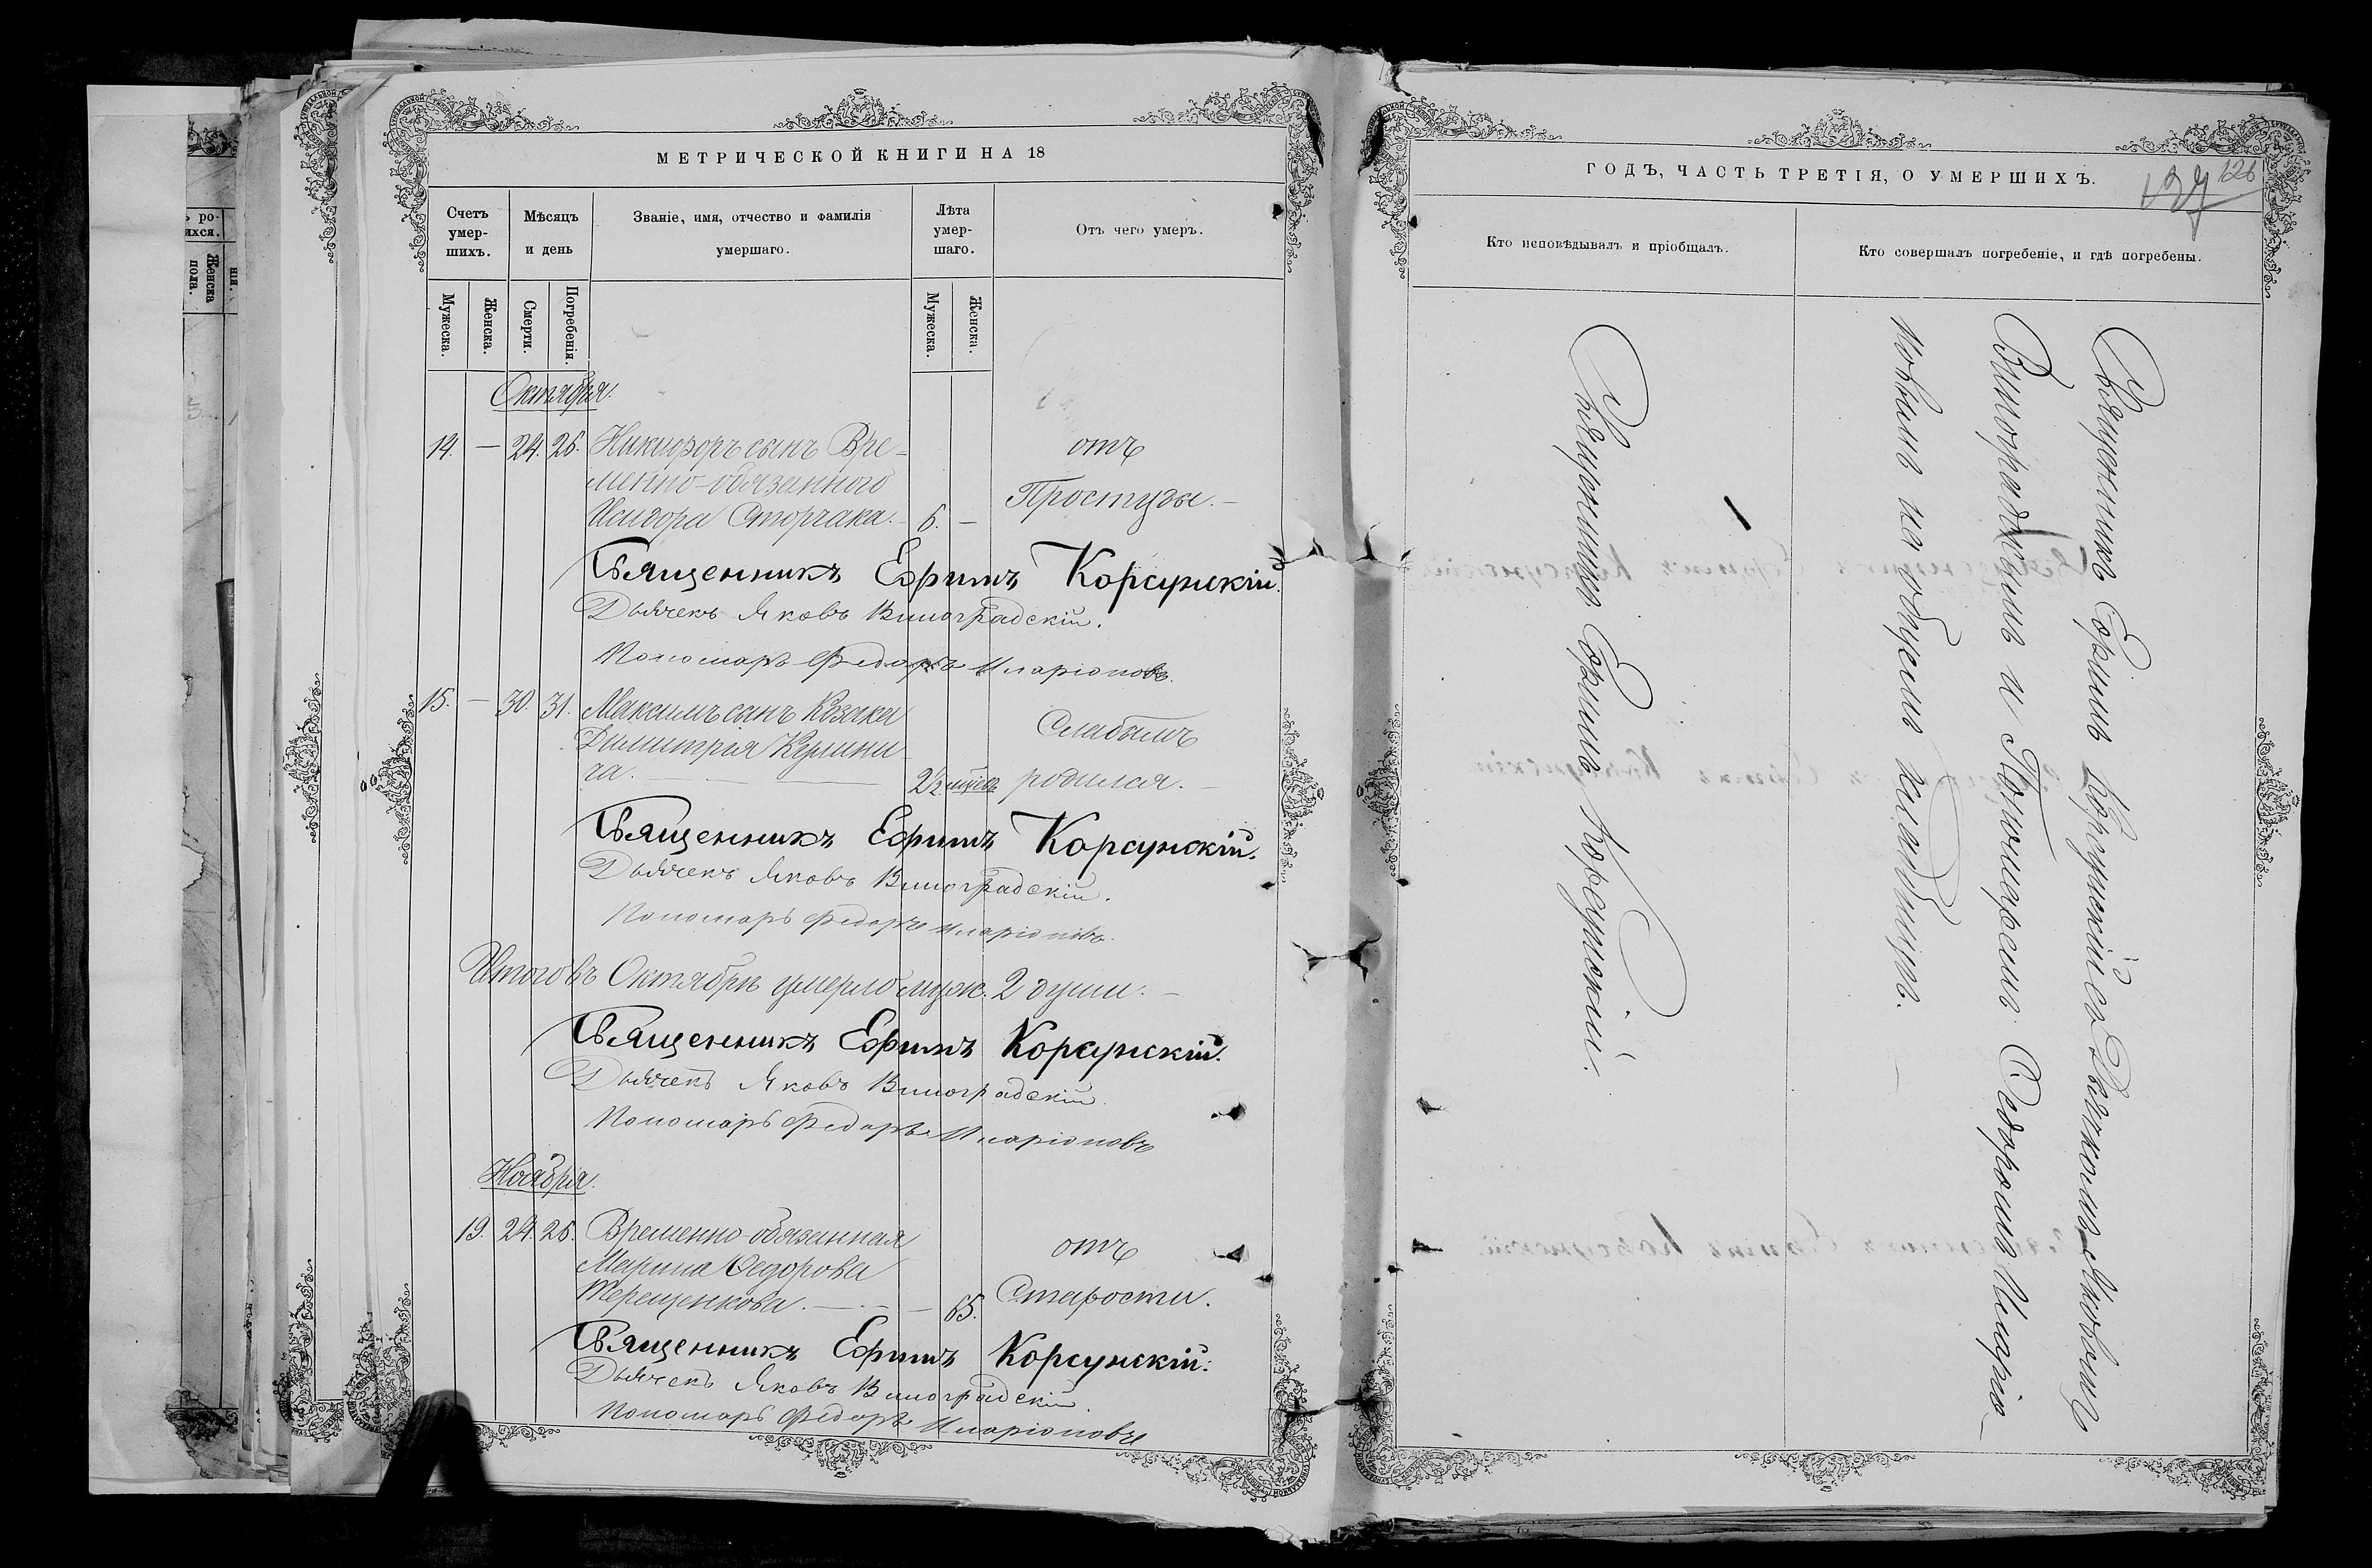 МЕТРИЧЕСКОЙ КНИГИ НА 18
Счетъ умер-
шихъ.
Мѣсяцъ
и день
Званіе, имя, отчество и фамилія
умершаго.
Лѣта
умер-
шаго.
Отъ чего умеръ.
Мужеска.
Женска.
Смерти.
Погребенія.
Мужеска.
Женска.
Октября.
14. — 24. 26. Никифоръ сынъ Вре-
менно-обязаннаго
Исидора Сторчака. 6. —
отъ
Простуды. —
Священникъ Ефимъ Корсунскій.
Дьячекъ Яковъ Виноградскій.
Пономарь Федоръ Иларіоновъ.
15. — 30. 31. Максимъ сынъ Козака
Димитрія Кулини-
ча. — 2½ мѣсяц.
Слабымъ
родился. —
Священникъ Ефимъ Корсунскій.
Дьячекъ Яковъ Виноградскій.
Пономарь Федоръ Иларіоновъ.
Итого въ Октябрѣ умерло муж. 2 души. —
Священникъ Ефимъ Корсунскій.
Дьячекъ Яковъ Виноградскій
Пономарь Федоръ Иларіоновъ
Ноября.
19. 24. 26. Временно-обязанная
Марина Федорова
Терещенкова. — 65.
отъ
Старости.
Священникъ Ефимъ Корсунскій.
Дьячекъ Яковъ Виноградскій.
Пономарь Федоръ Иларіоновъ
ГОДЪ, ЧАСТЬ ТРЕТІЯ, О УМЕРШИХЪ.
127
626
Кто исповѣдывалъ и пріобщалъ.
Кто совершалъ погребеніе, и гдѣ погребены.
Священникъ Ефимъ Корсунскій.
Священникъ Ефимъ Корсунскій съ Дьячкомъ Яковомъ
Виноградскимъ и Пономаремъ Федоромъ Иларіо-
новымъ на общемъ кладбищѣ.